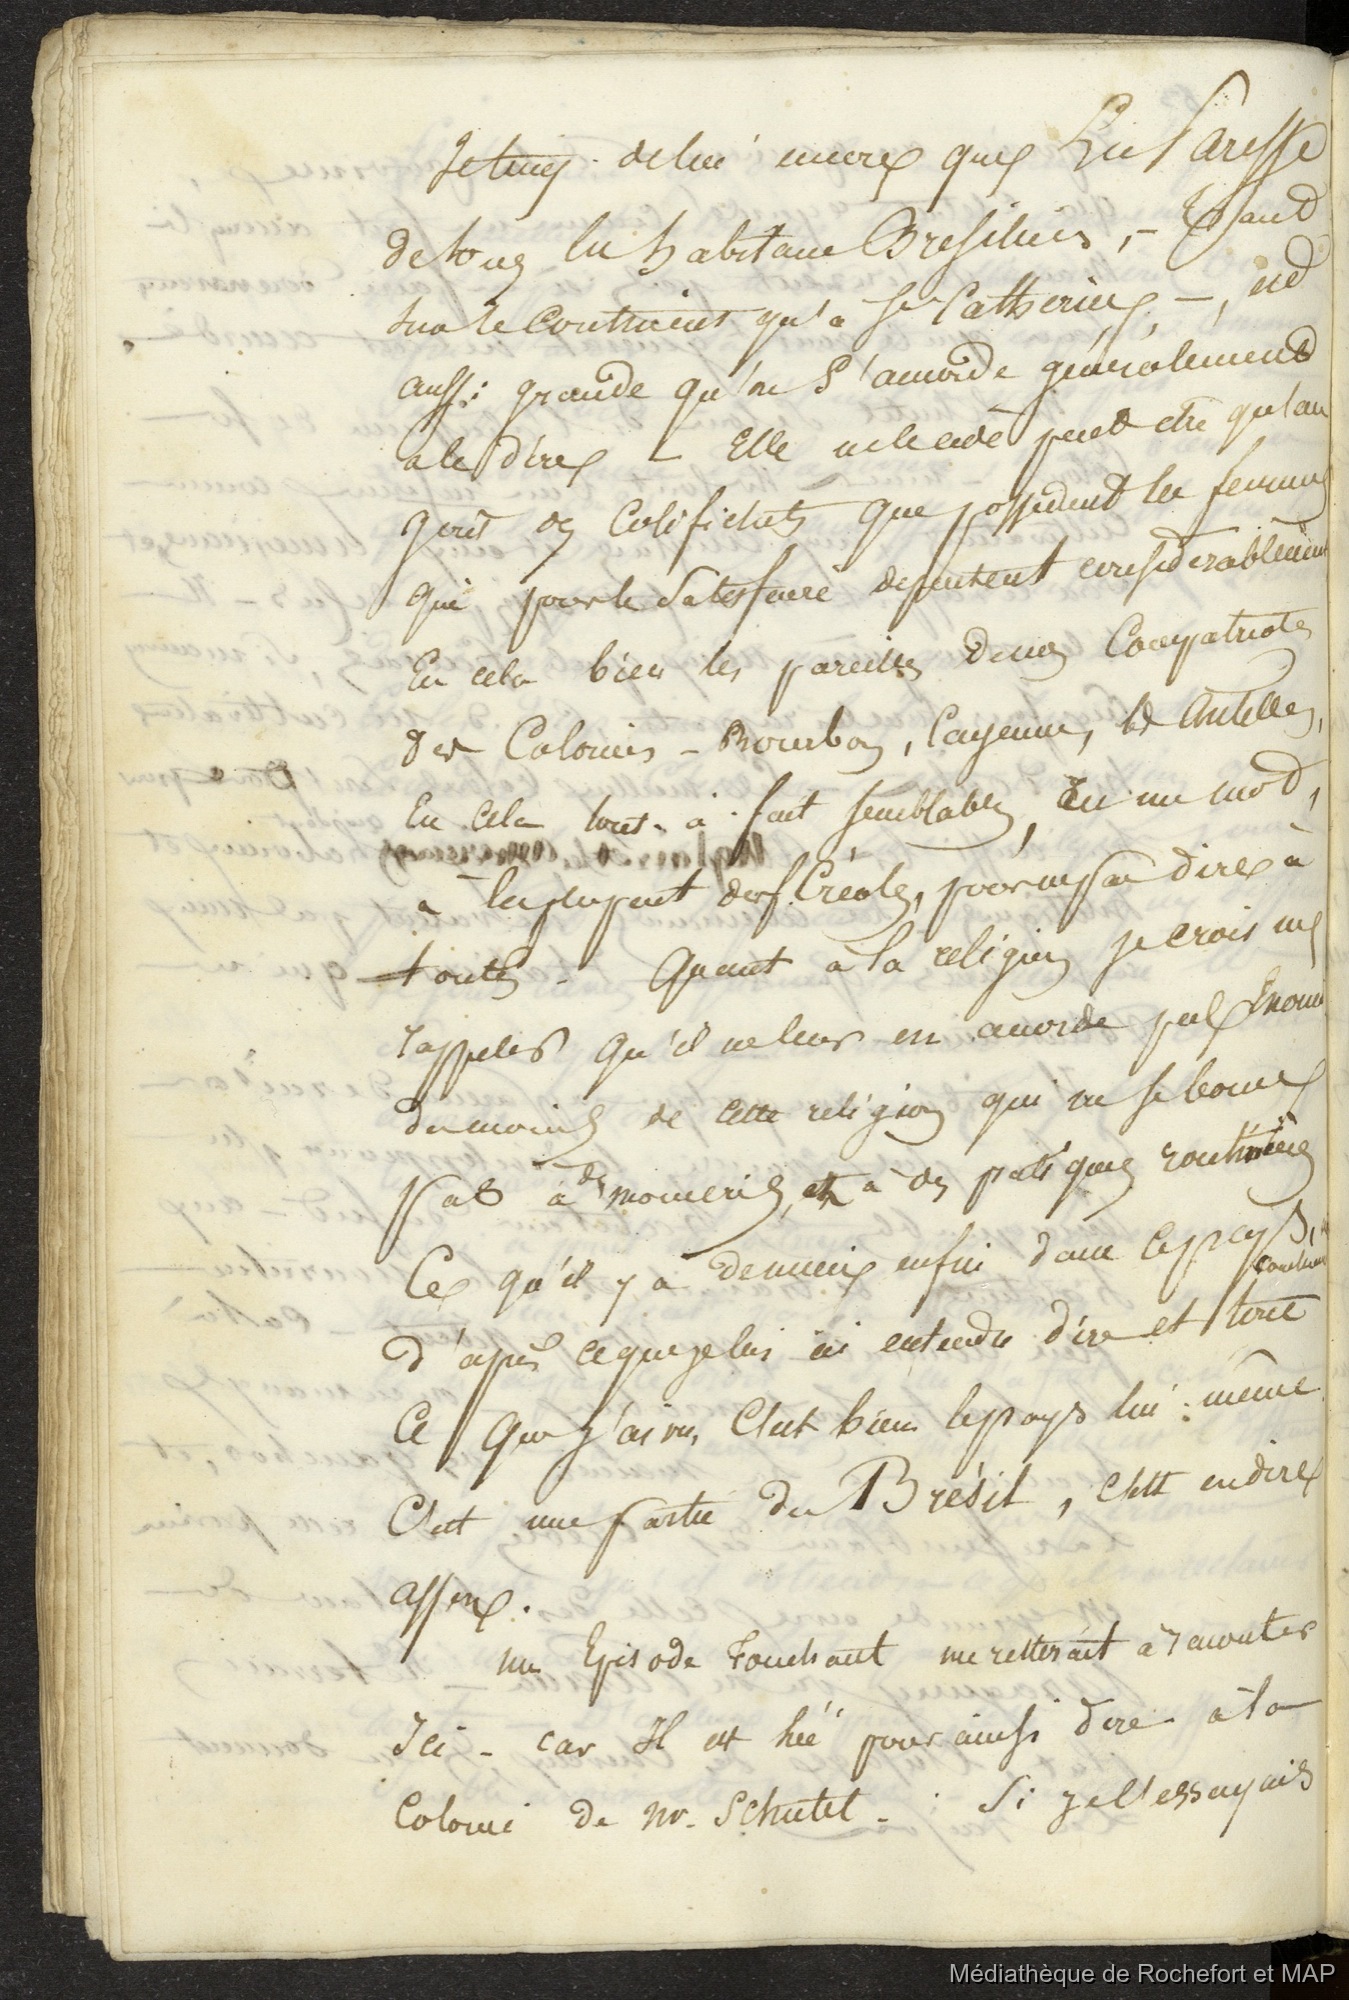 Je tiens de lui encore que La Paresse
de tous les habitans Bresiliens, – Tant
sur le continent qu'a Ste Catherine, –, est
aussi grande qu'on S'accorde généralement
a le dire – Elle ne le cède peut être qu'au
goût des Colifichets que possedent les femmes
qui pour le Satisfaire depensent considerablement
En cela bien les pareilles de nos Compatriotes
des Colonies – Bourbon, Cayenne, les Antilles,
En cela tout-à-fait semblables, En un mot,
a la plupart des Créoles, pour ne pas dire à
toutes – Quant à la religion je crois me
rappeler qu'il ne leur en accorde pas
du moins de cette religion qui ne se borne
pas à des momeries, et à des pratiques routinières
Ce qu'il y a de mieux enfin dans ce pays,
d'après ce que je lui ai entendu dire et tout
Ce que j'ai vu, C'est bien le pays lui-même
C'est une partie du Brésil, c'est en dire
assez.
Un Episode Touchant me resterait à raconter
Ici – car Il est lié pour ainsi dire à la
Colonie de Mr. Schutel – Si je l'essayais
Médiathèque de Rochefort et MAP